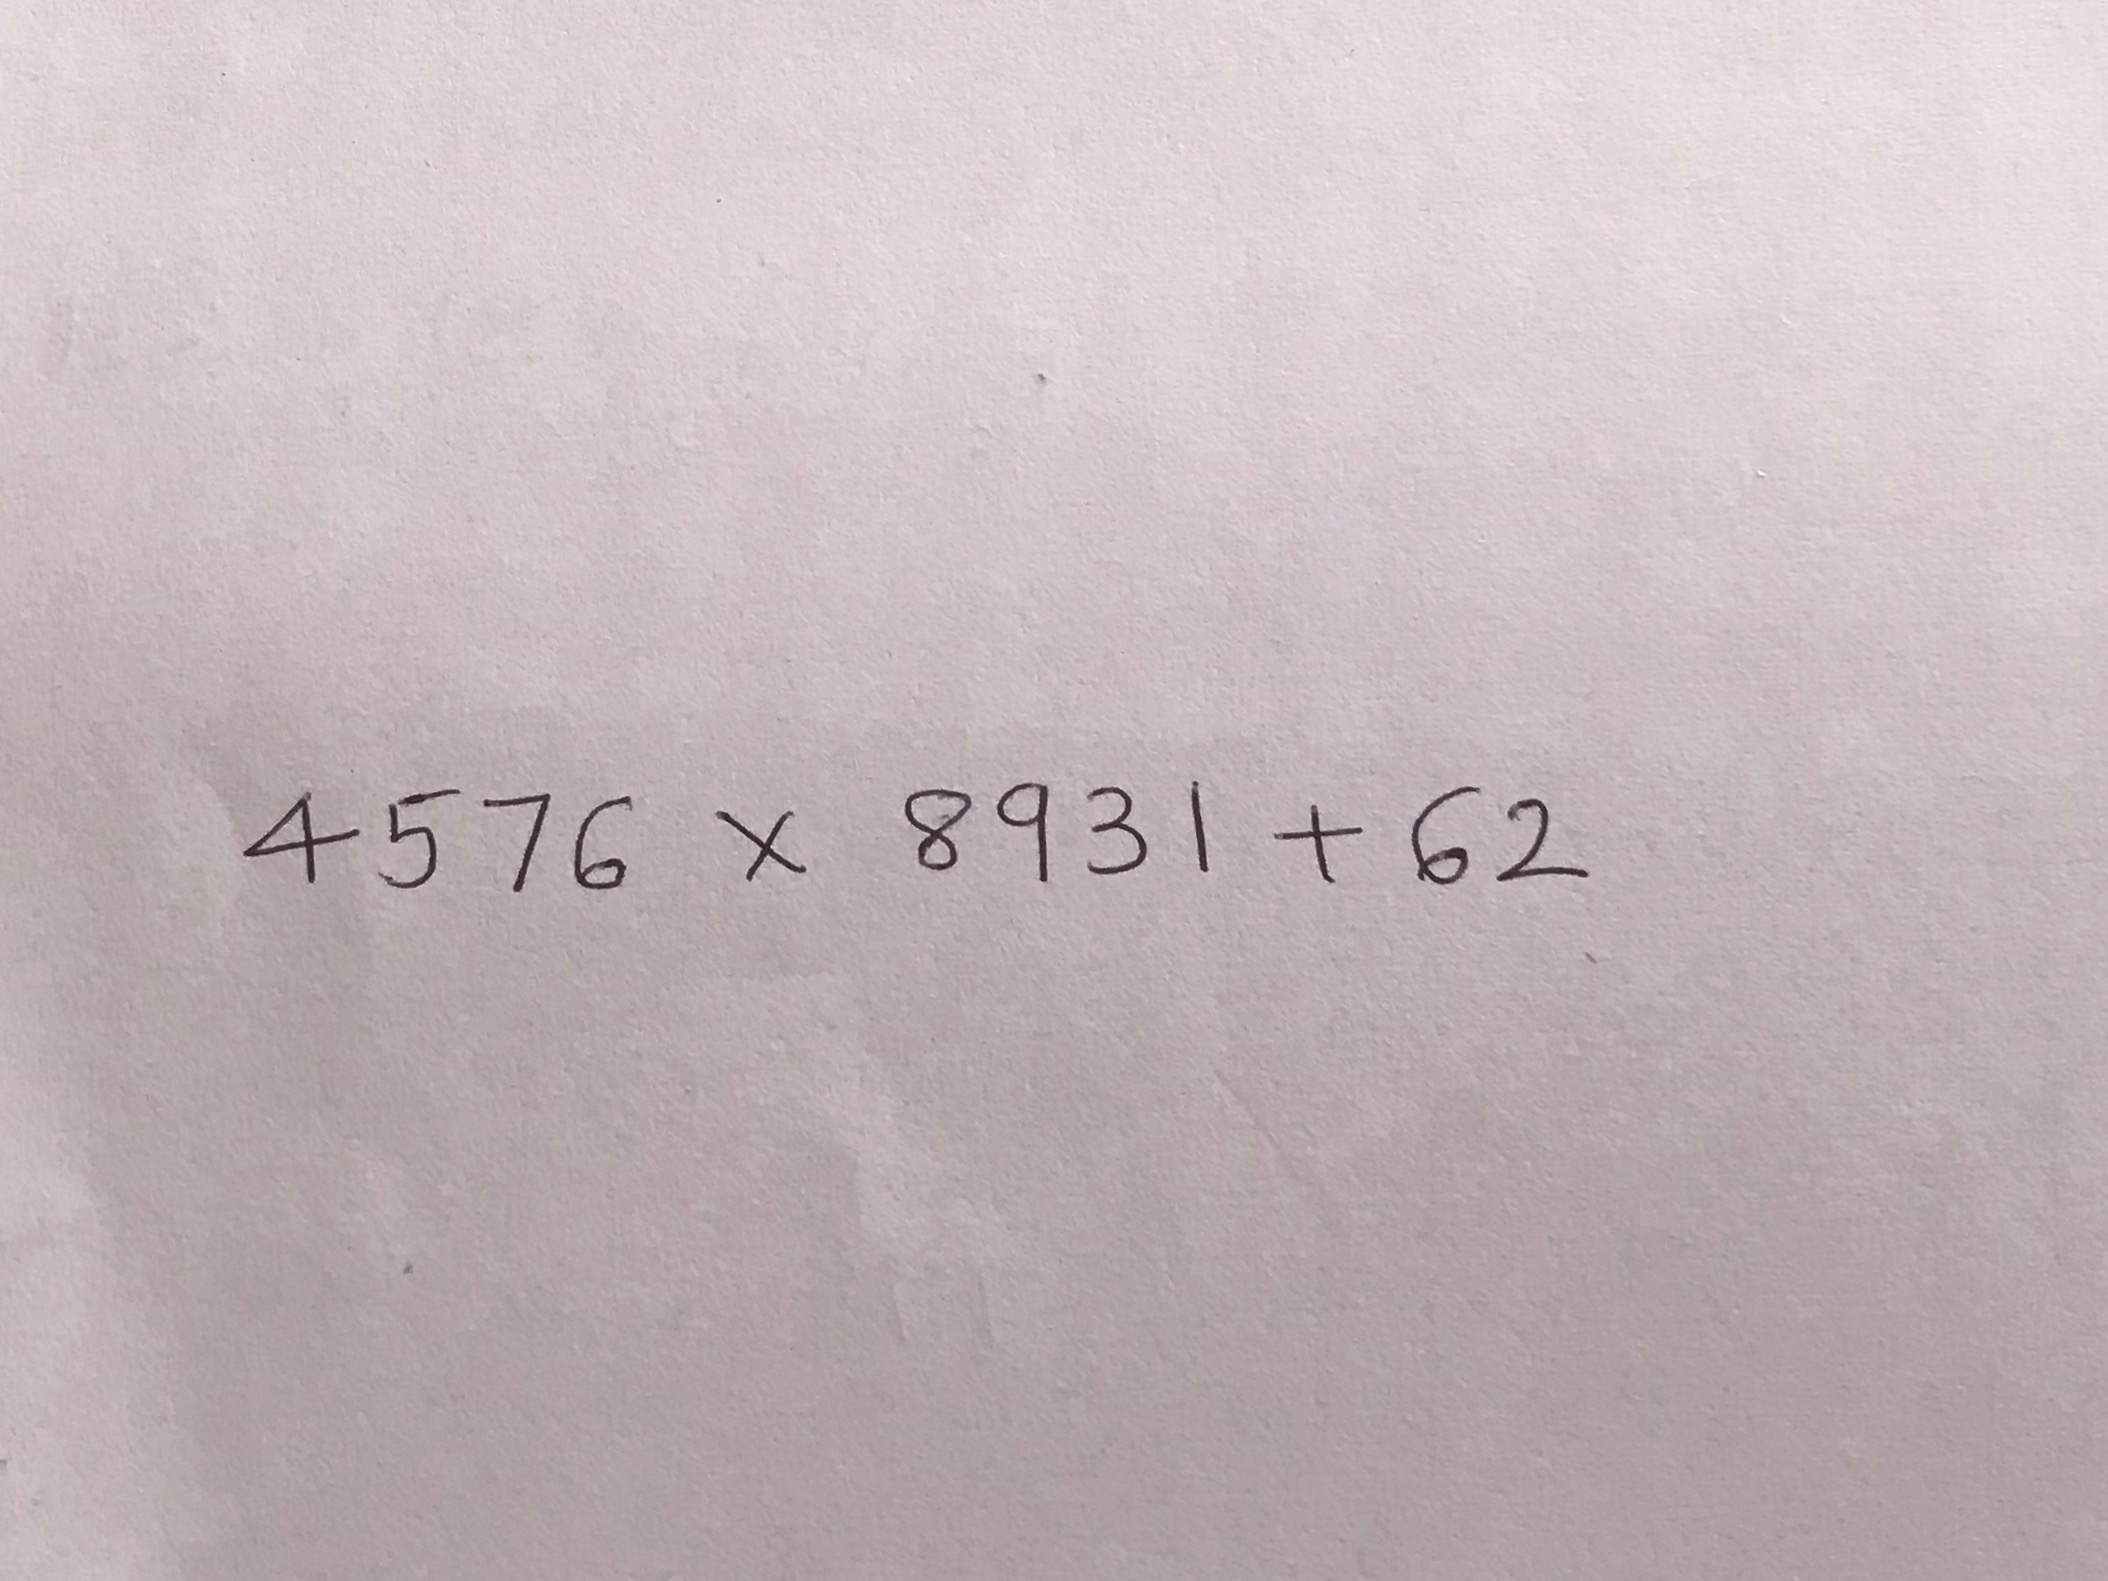 4576 x 8931 + 62